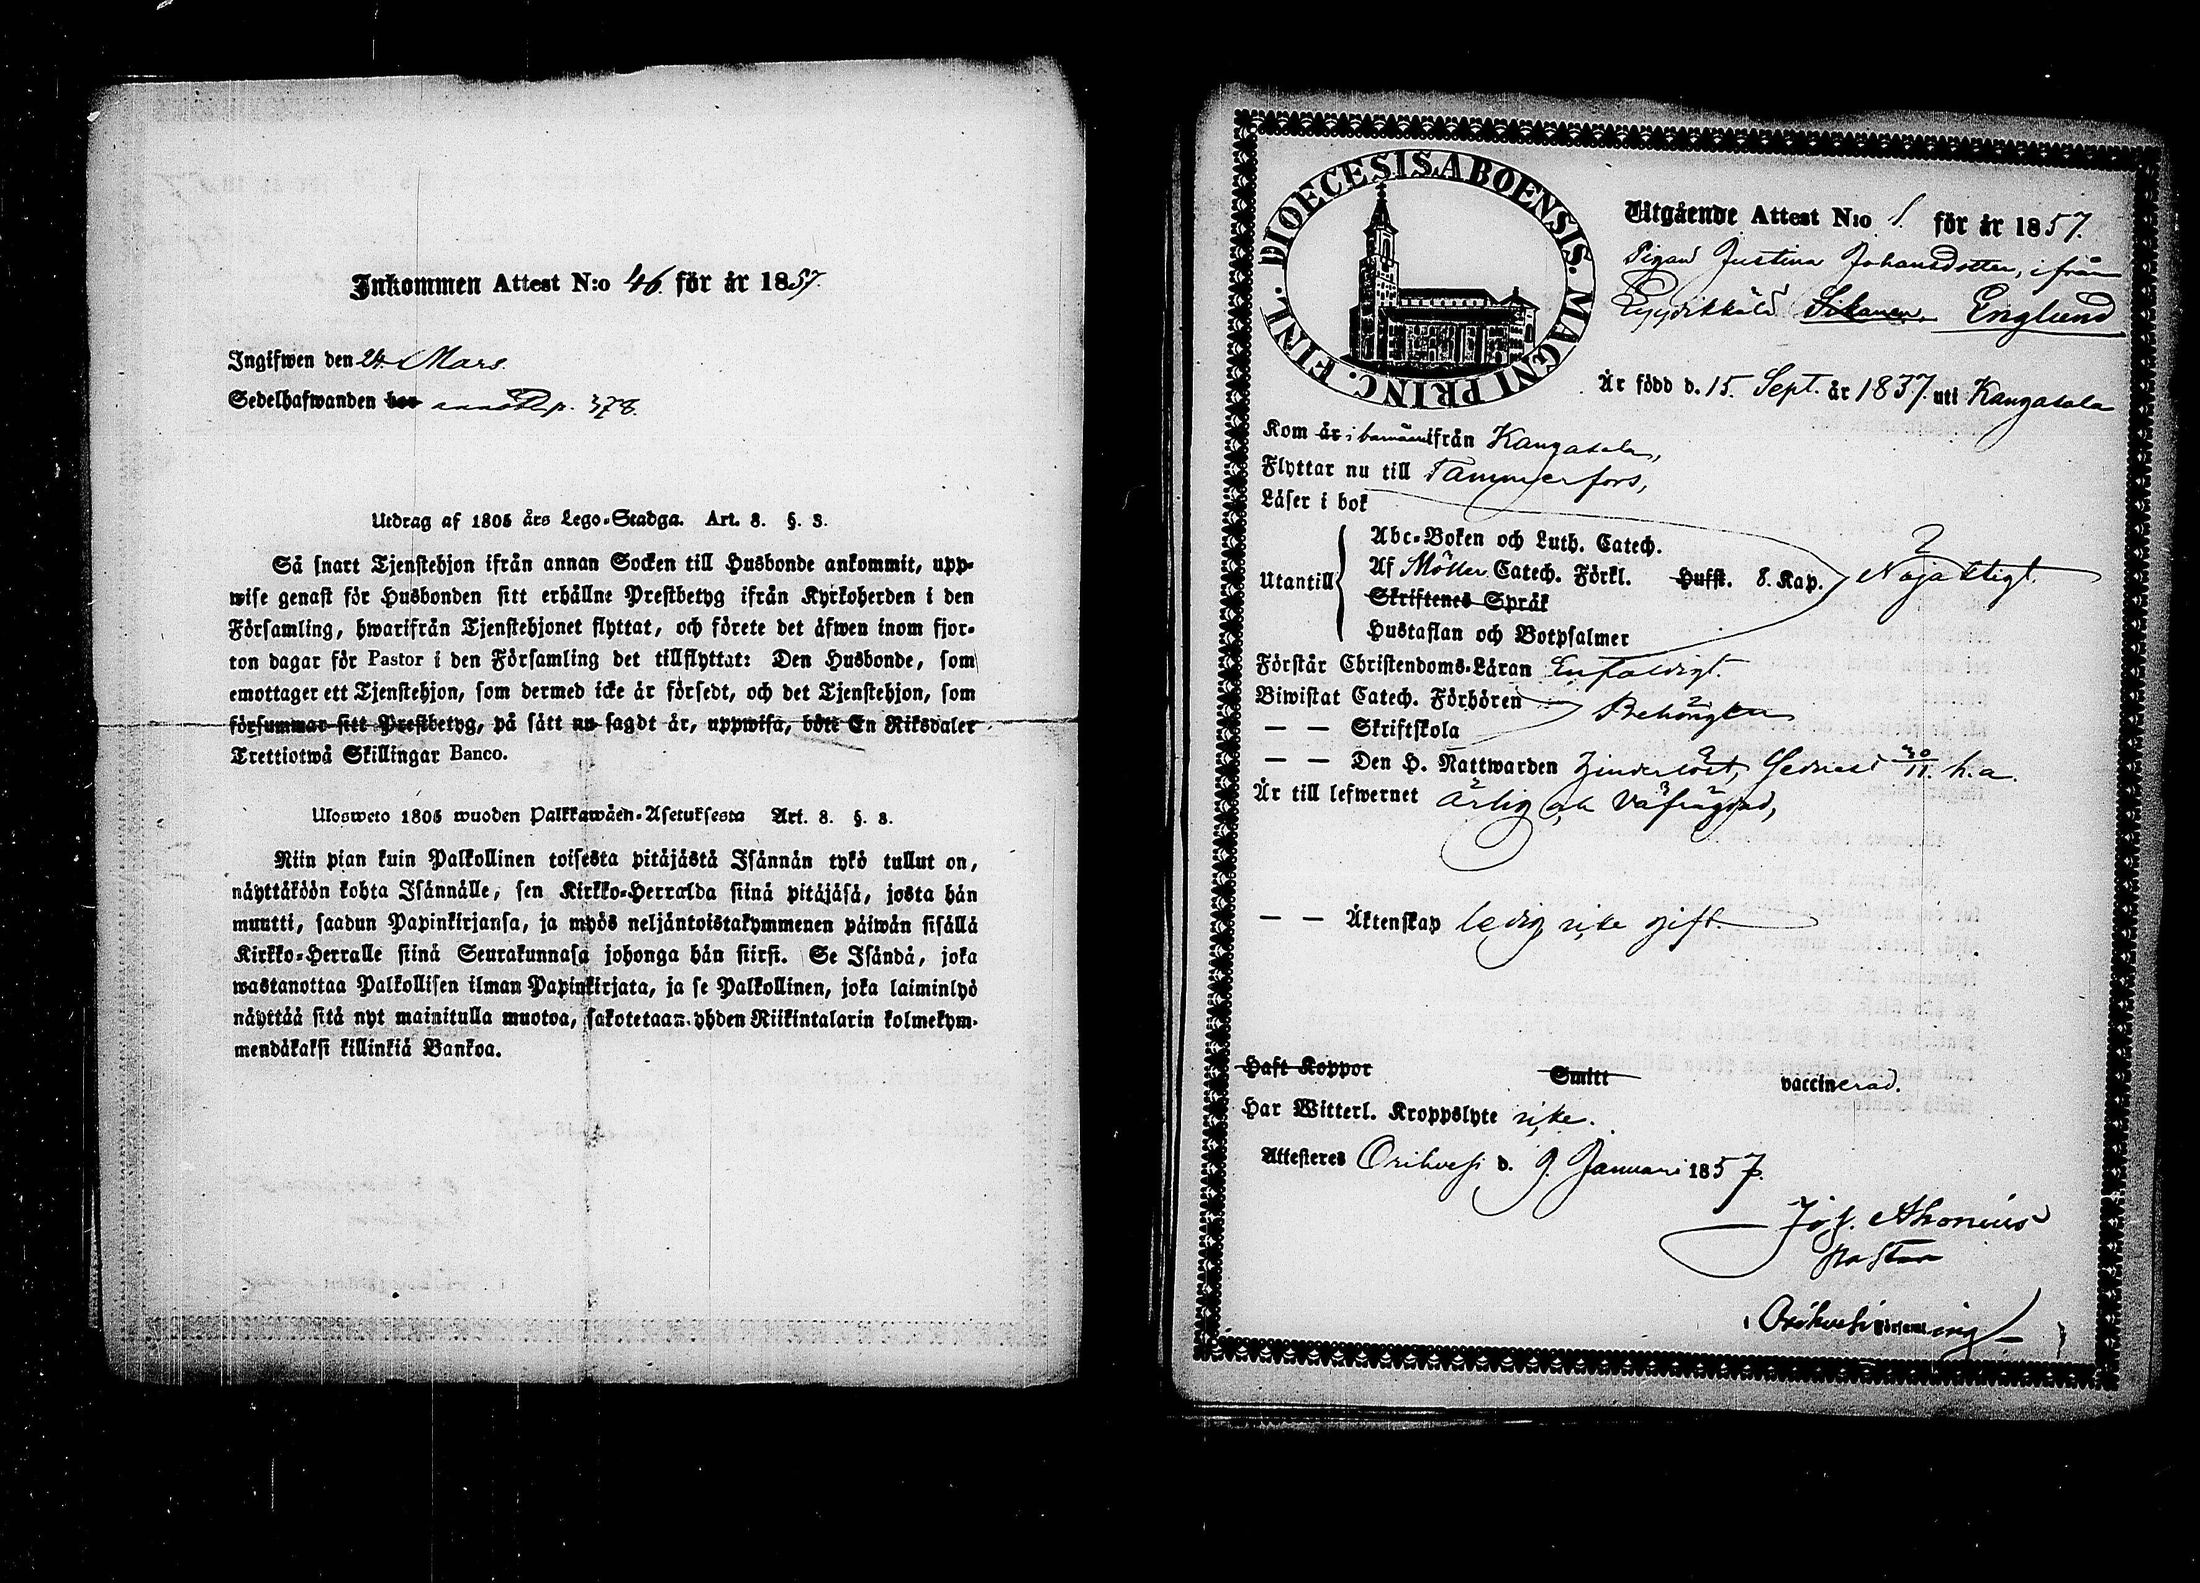 Inkommen Attest N:o 46. för år 1857.
Ingifwen den 24. Mars.
Sedelhafwanden bor p. 378.
Utdrag af 1805 års Lego-Stadga. Art. 8. §. 3.
Så snart Tjenstehjon ifrån annan Socken till Husbonde ankommit, upp-
wise genast för Husbonden sitt erhållne Prestbetyg ifrån Kyrkoherden i den
Församling, hwarifrån Tjenstehjonet flyttat, och förete det äfwen inom fjor-
ton dagar för Pastor i den Församling det tillflyttat: Den Husbonde, som
emottager ett Tjenstehjon, som dermed icke är försedt, och det Tjenstehjon, som
försummar sitt Prestbetyg, på sätt nu sagdt är, uppwisa, böte En Riksdaler
Trettiotwå Skillingar Banco.
Ulosweto 1805 wuoden Palkkawäen-Asetuksesta Art. 8. §. 3.
Niin pian kuin Palkollinen toisesta pitäjästä Isännän tykö tullut on,
näyttäköön kohta Isännälle, sen Kirkko-Herralda siinä pitäjäsä, josta hän
muutti, saadun Papinkirjansa, ja myös neljäntoistakymmenen päiwän sisällä
Kirkko-Herralle siinä Seurakunnasa johonga hän siirsi. Se Isändä, joka
wastanottaa Palkollisen ilman Papinkirjata, ja se Palkollinen, joka laiminlyö
näyttää sitä nyt mainitulla muotoa, sakotetaan yhden Riikintalarin kolmekym-
mendäkaksi killinkiä Bankoa.
DIOECESIS ABOENSIS. MAGNI PRINC. FINL.
Utgående Attest N:o 1. för år 1857.
Pigan Justina Johansdotter, ifrån
Englund
Är född d. 15. Sept. år 1837. uti Kangasala
Kom år i barnåren ifrån Kangasala,
Flyttar nu till Tammerfors,
Läser i bok
Utantill
Abc-Boken och Luth. Catech.
Af Möller Catech. Förkl. Hufst. 8. Kap. Nöjaktigt.
Skriftenes Språk
Hustaflan och Botpsalmer
Förstår Christendoms-Läran Enfaldigt.
Biwistat Catech. Förhören Behörigen
— — Skriftskola
— — Den H. Nattwarden senast 30/11. h.a.
Är till lefwernet ärlig och välfrägdad,
— — Äktenskap ledig icke gift.
Haft Koppor Smitt vaccinerad.
Har Witterl. Kroppslyte icke.
Attesteres Orihvesi d. 9. Januari 1857.
Jos. Ahonius
Pastor
i Orihvesi Församling